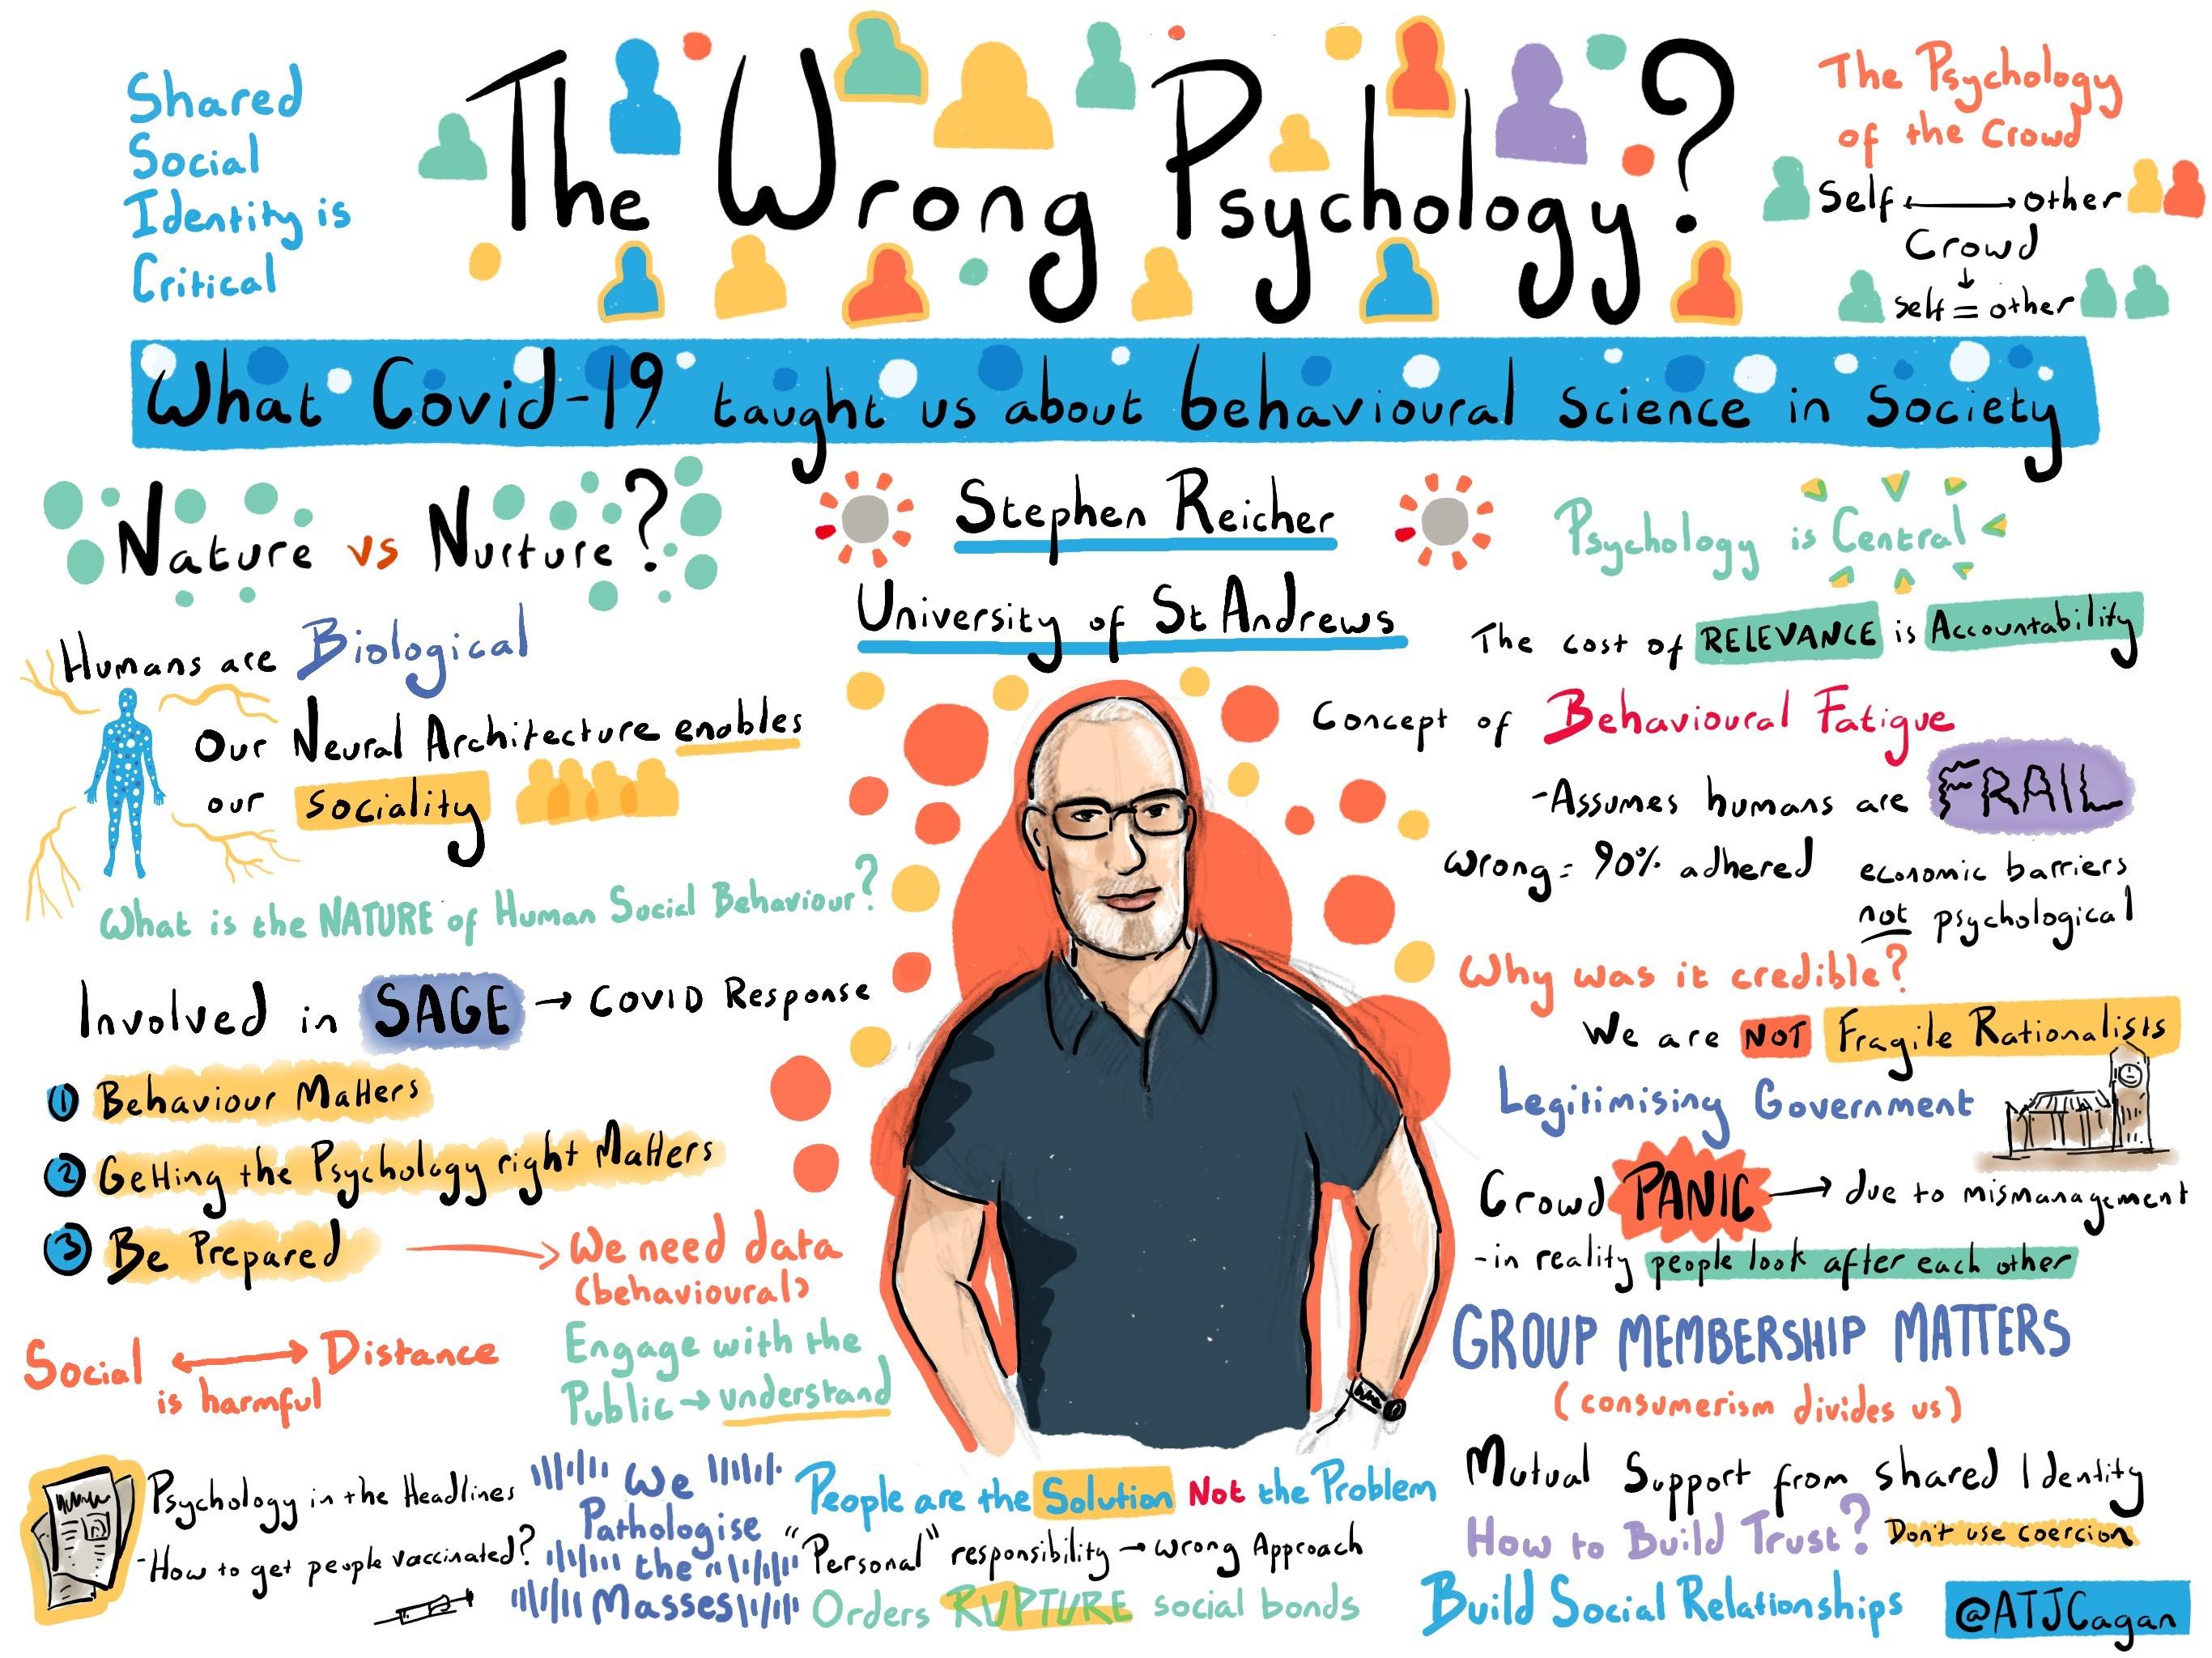 Shared
Social
Identity is
Critical
The Wrong Psychology?
The Psychology
of the Crowd
Self ←→ other
Crowd
↓
self = other
What Covid-19 taught us about behavioural science in society
Nature vs Nurture?
Humans are Biological
Our Neural Architecture enables
our sociality
What is the NATURE of Human Social Behaviour?
Involved in SAGE → COVID Response
1 Behaviour Matters
2 Getting the Psychology right Matters
3 Be Prepared → We need data
(behavioural)
Engage with the
Public → understand
Social ←→ Distance
is harmful
Psychology in the Headlines
- How to get people vaccinated?
We
Pathologise
the
Masses
Stephen Reicher
University of St Andrews
People are the Solution Not the Problem
"Personal" responsibility → wrong Approach
Orders RUPTURE social bonds
Psychology is Central
The cost of RELEVANCE is Accountability
Concept of Behavioural Fatigue
- Assumes humans are FRAIL
Wrong = 90% adhered
economic barriers
not psychological
Why was it credible?
We are NOT Fragile Rationalists
Legitimising Government
Crowd PANIC → due to mismanagement
- in reality people look after each other
GROUP MEMBERSHIP MATTERS
(consumerism divides us)
Mutual Support from shared Identity
How to Build Trust? Don't use coercion
Build Social Relationships
@ATJCagan